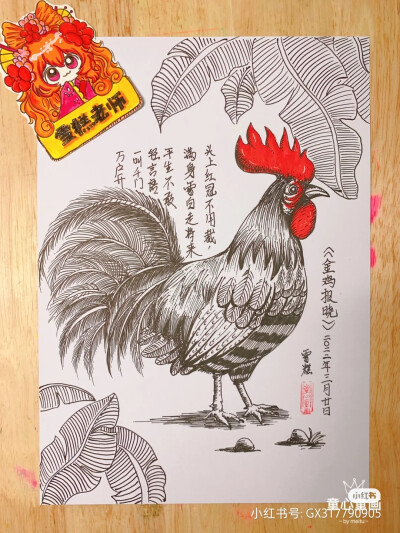 蛋糕老师
头上红冠不用裁,
满身雪白走将来
平生不敢
轻言语
一叫千门
万户开
《金鸡报晓》二〇二二年二月廿日
小红书
童心童画
- by meitu -
小红书号: GX317790905